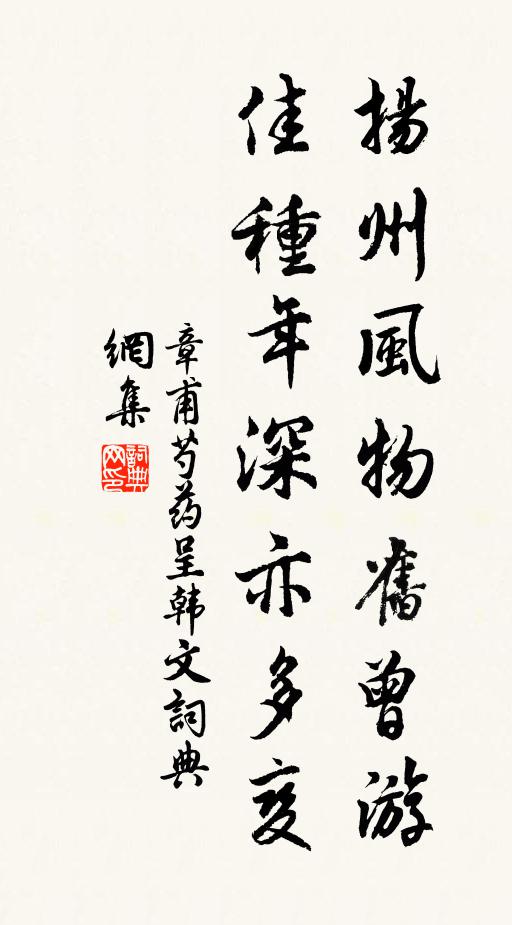 揚州風物舊曾游
佳種年深亦多变
章甫芍药呈韩文詞典
網集
詞典网印